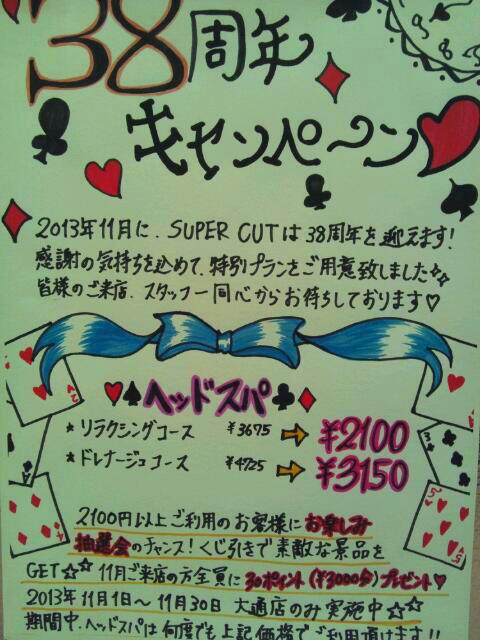 38周年
キャンペーン
2013年11月に、SUPER CUTは38周年を迎えます!
感謝の気持ちを込めて、特別プランをご用意致しました☆☆
皆様のご来店、スタッフ一同心からお待ちしております♡
ヘッドスパ
★リラクシングコース ¥3675 → ¥2100
★ドレナージュコース ¥4725 → ¥3150
2100円以上ご利用のお客様にお楽しみ
抽選会のチャンス!くじ引きで素敵な景品を
GET☆☆ 11月ご来店の方全員に30ポイント(¥3000分)プレゼント♡
2013年11月1日〜11月30日 大通店のみ実施中☆☆
期間中、ヘッドスパは何度でも上記価格でご利用頂けます!!